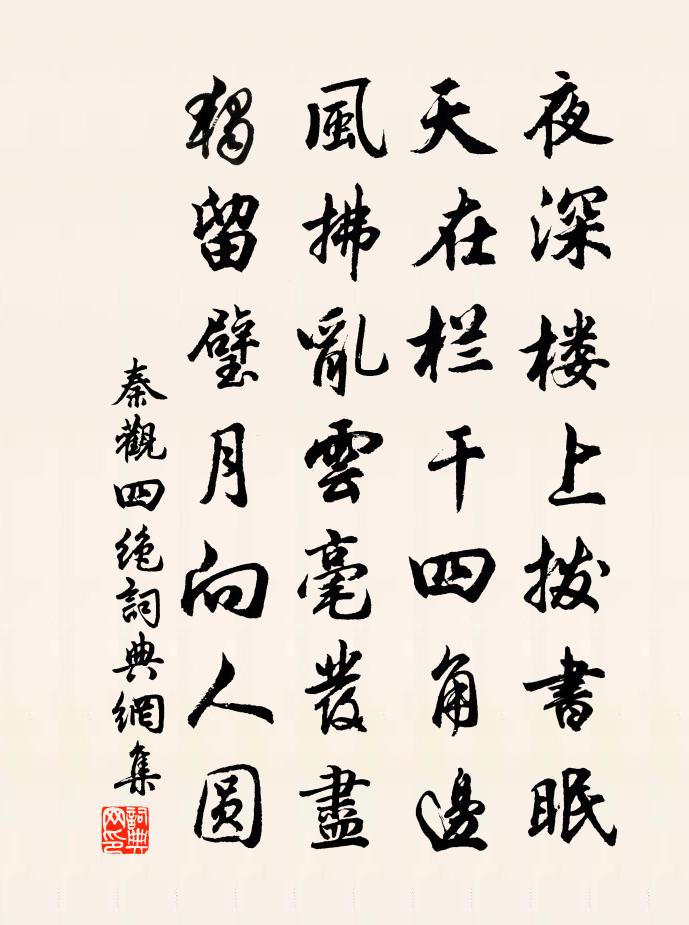 夜深楼上拨書眠
天在栏干四角邊
風拂亂雲毫发盡
獨留璧月向人圆
秦觀四绝詞典網集
詞典網印